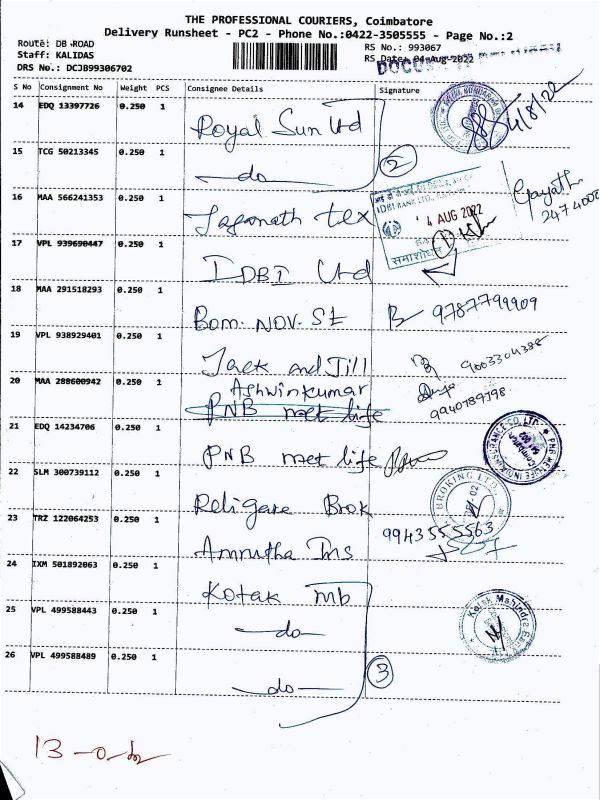 THE PROFESSIONAL COURIERS, Coimbatore
Delivery Runsheet - PC2 - Phone No.:0422-3505555 - Page No.:2
Route: DB ROAD
Staff: KALIDAS
DRS No.: DCJB99306702
RS No.: 993067
RS Date: 04-Aug-2022
S No Consignment No Weight PCS Consignee Details Signature
14 EDQ 13397726 0.250 1 Royal Sun Ltd 4/8/22
15 TCG 50213345 0.250 1 —do— 2
16 MAA 566241353 0.250 1 Jaganath tex
IDBI BANK LTD.
4 AUG 2022
Gayath
2474000
17 VPL 939690447 0.250 1 IDBI Ltd
18 MAA 291518293 0.250 1 Bom. NOV. St 9787799909
19 VPL 938929401 0.250 1 Jack and Jill 9003304382
20 MAA 288600942 0.250 1 Ashwinkumar
PNB met life
9940789798
21 EDQ 14234706 0.250 1 PNB met life
22 SLM 300739112 0.250 1 Religare Brok
BROKING LTD.
23 TRZ 122064253 0.250 1 Amrutha Ins 9943555563
24 IXM 501892063 0.250 1 Kotak mb
25 VPL 499588443 0.250 1 —do—
Kotak Mahindra Bank
26 VPL 499588489 0.250 1 —do— 3